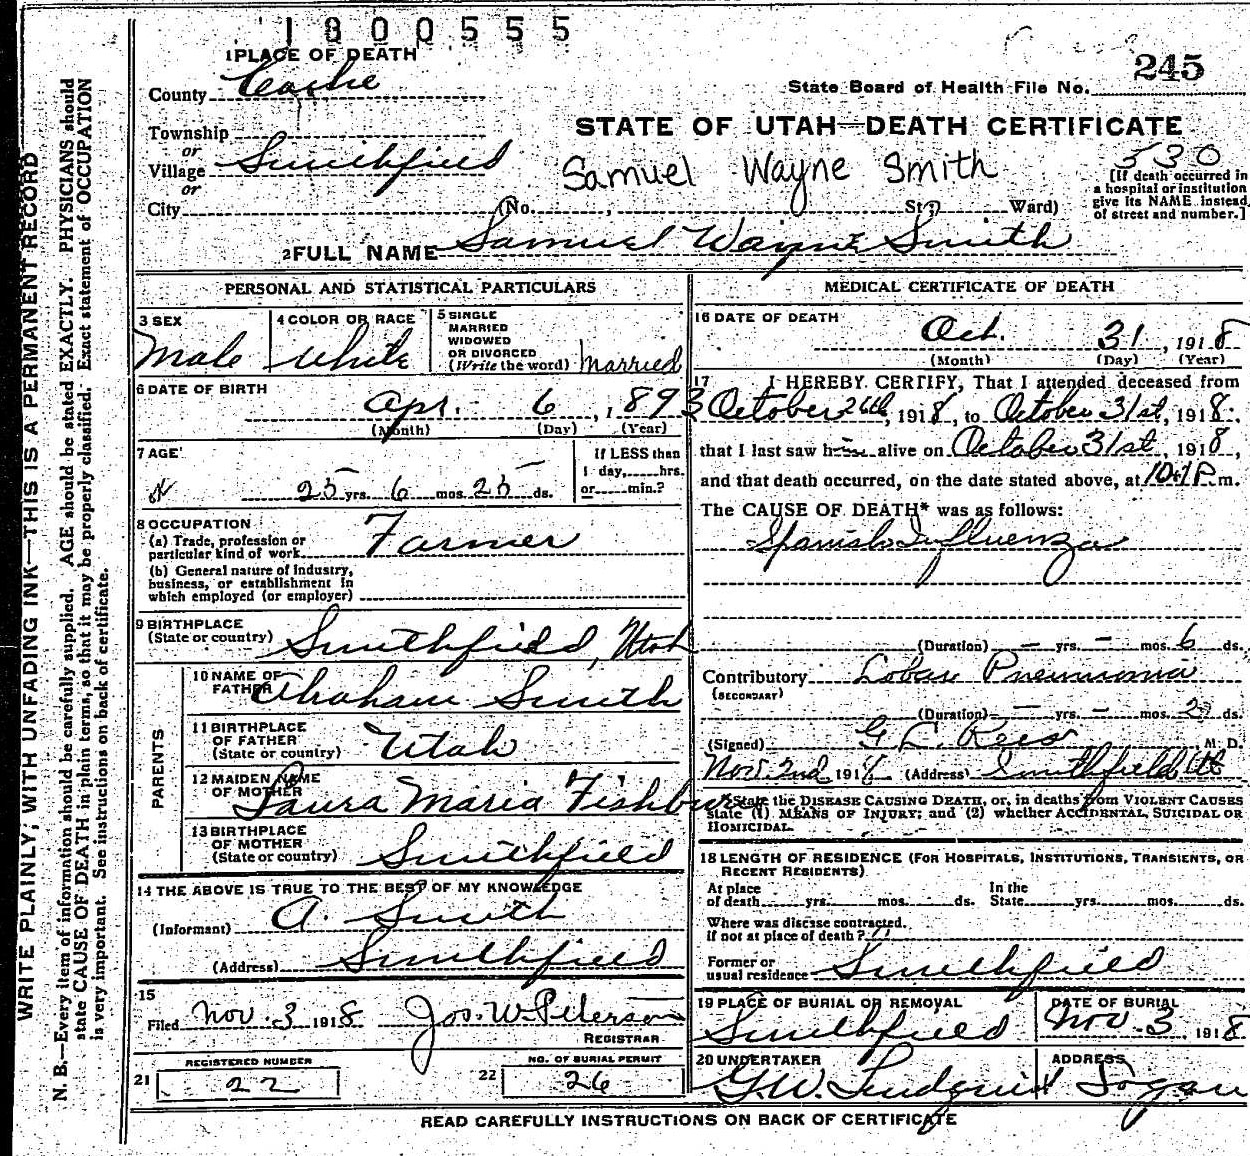 1800555
245
1 PLACE OF DEATH
County Cache
State Board of Health File No.
Township
or
Village Smithfield
or
City (No. , St; Ward)
STATE OF UTAH—DEATH CERTIFICATE
530
Samuel Wayne Smith
[If death occurred in
a hospital or institution
give its NAME instead
of street and number.]
2 FULL NAME Samuel Wayne Smith
PERSONAL AND STATISTICAL PARTICULARS
3 SEX
Male
4 COLOR OR RACE
White
5 SINGLE
MARRIED
WIDOWED
OR DIVORCED
(Write the word) Married
6 DATE OF BIRTH
Apr. 6, 1893
(Month) (Day) (Year)
7 AGE
25 yrs. 6 mos. 25 ds.
If LESS than
1 day, hrs.
or min.?
8 OCCUPATION
(a) Trade, profession or
particular kind of work Farmer
(b) General nature of industry,
business, or establishment in
which employed (or employer)
9 BIRTHPLACE
(State or country) Smithfield, Utah
PARENTS
10 NAME OF
FATHER Abraham Smith
11 BIRTHPLACE
OF FATHER
(State or country) Utah
12 MAIDEN NAME
OF MOTHER Laura Maria Fishburn
13 BIRTHPLACE
OF MOTHER
(State or country) Smithfield
14 THE ABOVE IS TRUE TO THE BEST OF MY KNOWLEDGE
(Informant) A. Smith
(Address) Smithfield
15
Filed Nov. 3 1918 Jos. W. Peterson
REGISTRAR
REGISTERED NUMBER
21 22
NO. OF BURIAL PERMIT
22 26
MEDICAL CERTIFICATE OF DEATH
16 DATE OF DEATH
Oct. 31, 1918
(Month) (Day) (Year)
17 I HEREBY CERTIFY, That I attended deceased from
October 26th, 1918, to October 31st, 1918.
that I last saw him alive on October 31st, 1918,
and that death occurred, on the date stated above, at P. m.
The CAUSE OF DEATH* was as follows:
Spanish Influenza
(Duration) — yrs. — mos. 6 ds.
Contributory Lobar Pneumonia
(SECONDARY)
(Duration) — yrs. — mos. 2 ds.
(Signed) G. L. Rees M. D.
Nov. 2nd 1918 (Address) Smithfield Ut
*State the DISEASE CAUSING DEATH, or, in deaths from VIOLENT CAUSES
state (1) MEANS OF INJURY; and (2) whether ACCIDENTAL, SUICIDAL OR
HOMICIDAL.
18 LENGTH OF RESIDENCE (FOR HOSPITALS, INSTITUTIONS, TRANSIENTS, OR
RECENT RESIDENTS)
At place
of death yrs. mos. ds.
In the
State yrs. mos. ds.
Where was disease contracted.
if not at place of death?
Former or
usual residence Smithfield
19 PLACE OF BURIAL OR REMOVAL
Smithfield
DATE OF BURIAL
Nov. 3 1918
20 UNDERTAKER
G.W. Lindquist
ADDRESS
Logan
READ CAREFULLY INSTRUCTIONS ON BACK OF CERTIFICATE
WRITE PLAINLY, WITH UNFADING INK—THIS IS A PERMANENT RECORD
N. B.—Every item of information should be carefully supplied. AGE should be stated EXACTLY. PHYSICIANS should
state CAUSE OF DEATH in plain terms, so that it may be properly classified. Exact statement of OCCUPATION
is very important. See instructions on back of certificate.